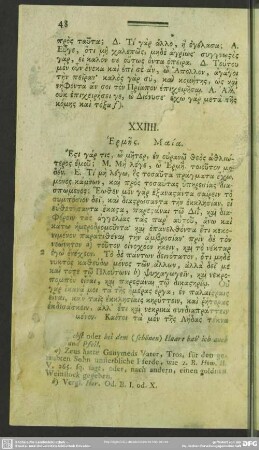 48
πρὸς ταῦτα; Δ. Τί γὰρ ἄλλο, ἢ ἐγέλασα; Α.
Εὖγε, ὅτι μὴ χαλεπῶς, μηδὲ ἀγρίως· συγγνωστὸς
γὰρ, εἰ καλόν σε οὕτως ὄντα ἐπείρα. Δ. Τούτου
μὲν οὖν ἕνεκα καὶ ἐπὶ σὲ ἂν, ὦ Ἄπολλον, ἀγάγοι
τὴν πεῖραν· καλὸς γὰρ σὺ, καὶ κομήτης, ὡς καὶ
νήφοντα ἄν σοι τὸν Πρίαπον ἐπιχειρῆσαι. Α. Ἀλλ'
οὐκ ἐπιχειρήσει γε, ὦ Διόνυσε· ἔχω γὰρ μετὰ τῆς
κόμης καὶ τόξα.
XXIIII.
Ἑρμῆς. Μαία.
Ἔστι γάρ τις, ὦ μῆτερ, ἐν οὐρανῷ θεὸς ἀθλιώ-
τερος ἐμοῦ; Μ. Μὴ λέγε, ὦ Ἑρμῆ, τοιοῦτον μη-
δέν. Ε. Τί μὴ λέγω, ὃς τοσαῦτα πράγματα ἔχω,
μόνος κάμνων, καὶ πρὸς τοσαύτας ὑπηρεσίας δια-
σπώμενος; Ἕωθεν μὲν γὰρ ἐξαναστάντα σαίρειν τὸ
συμπόσιον δεῖ, καὶ διαστρώσαντα τὴν ἐκκλησίαν, εἶτα
εὐθετήσαντα ἕκαστα, παρεστάναι τῷ Διῒ, καὶ δια-
φέρειν τὰς ἀγγελίας τὰς παρ' αὐτοῦ, ἄνω καὶ
κάτω ἡμεροδρομοῦντα· καὶ ἐπανελθόντα ἔτι κεκο-
νιμένον παρατιθέναι τὴν ἀμβροσίαν· πρὶν δὲ τὸν
νεώνητον a) τοῦτον οἰνοχόον ἥκειν, καὶ τὸ νέκταρ
ἐγὼ ἐνέχεον. Τὸ δὲ πάντων δεινότατον, ὅτι μηδὲ
νυκτὸς καθεύδω μόνος τῶν ἄλλων, ἀλλὰ δεῖ με
καὶ τότε τῷ Πλούτωνι b) ψυχαγωγεῖν, καὶ νεκρο-
πομπὸν εἶναι, καὶ παρεστάναι τῷ δικαστηρίῳ. Οὐ
γὰρ ἱκανά μοι τὰ τῆς ἡμέρας ἔργα, ἐν παλαίστραις
εἶναι, κἀν ταῖς ἐκκλησίαις κηρύττειν, καὶ ῥήτορας
ἐκδιδάσκειν, ἀλλ' ἔτι καὶ νεκρικὰ συνδιαπράττειν
μεμερισμένον. Καίτοι τὰ μὲν τῆς Λήδας τέκνα
chst oder bei dem (schönen) Haare hab' ich auch
und Pfeil.
a) Zeus hatte Ganymeds Vater, Tros, für den ge-
raubten Sohn unsterbliche Pferde, wie z. B. Hom. Il.
V, 265. fg. sagt, oder, nach andern, einen goldnen
Weinstock gegeben.
b) Vergl. Hor. Od. B. I, od. X.